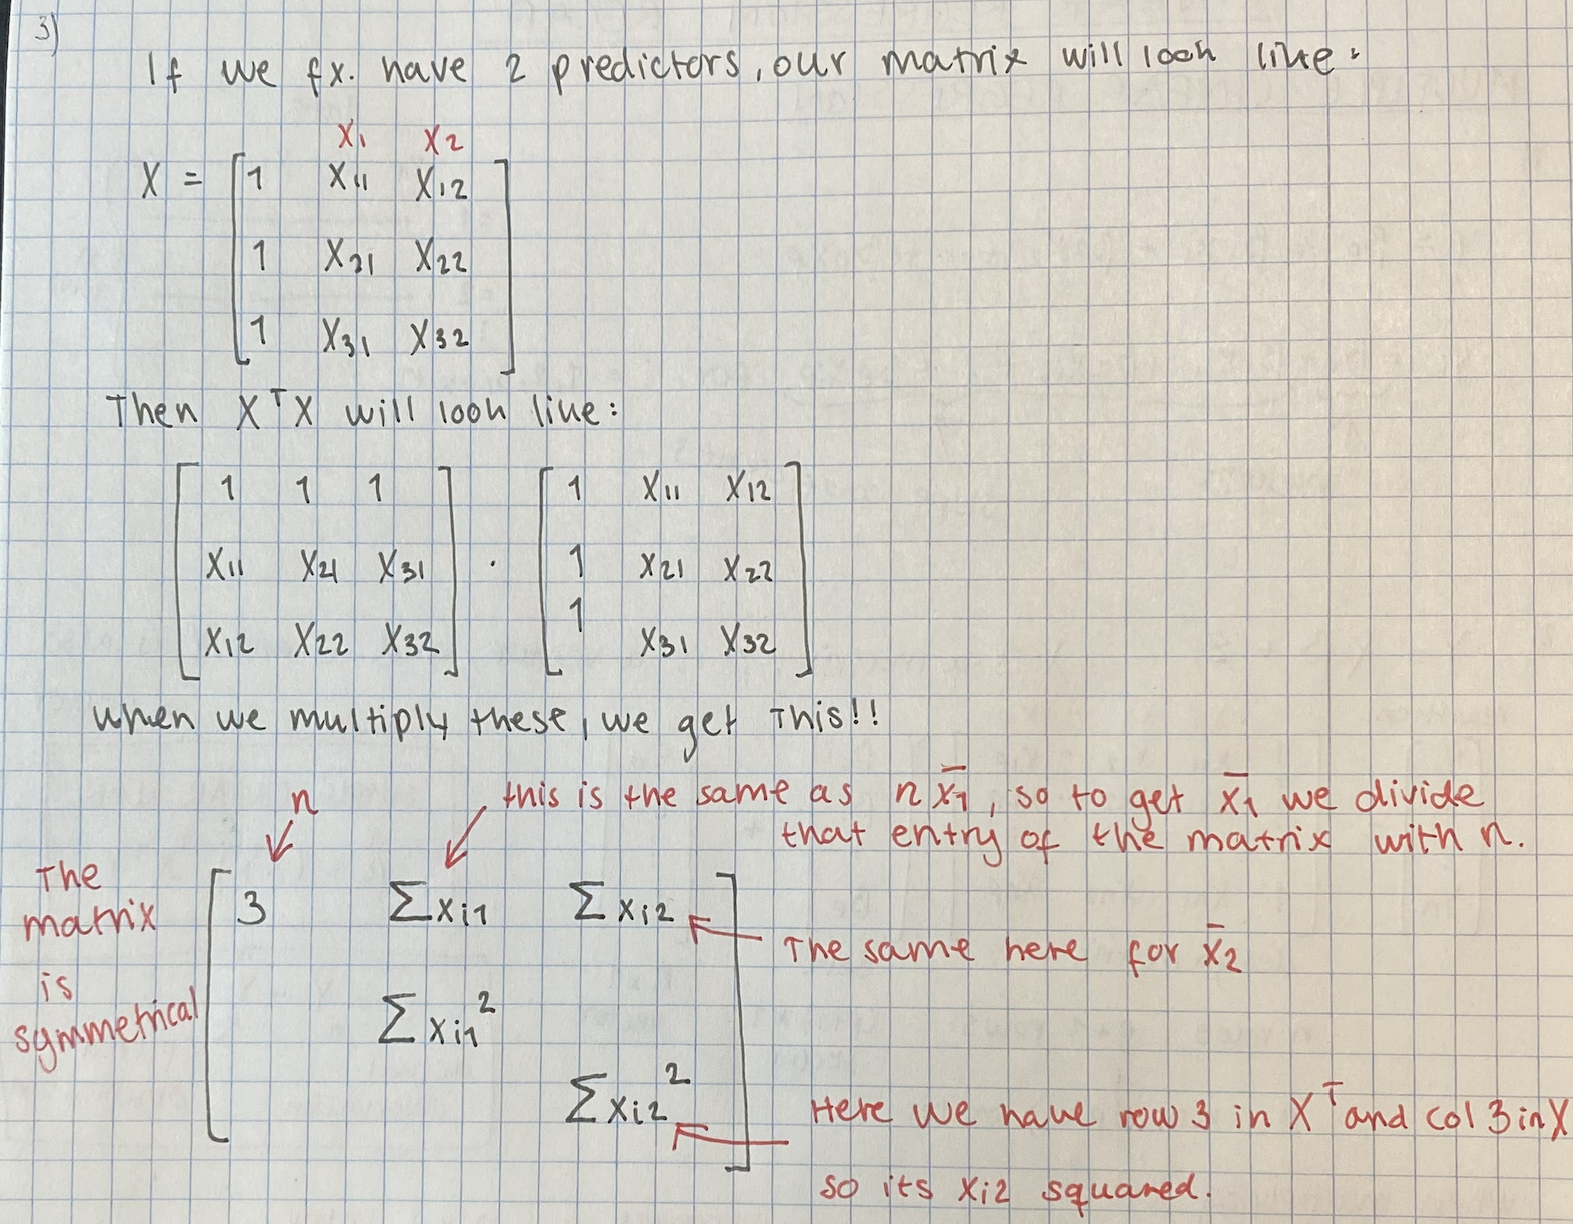 3)
If we fx. have 2 predictors, our matrix will look like:
x₁ x₂
X = [ 1 x₁₁ x₁₂
1 x₂₁ x₂₂
1 x₃₁ x₃₂ ]
Then XᵀX will look like:
[ 1 1 1 ] [ 1 x₁₁ x₁₂ ]
[ x₁₁ x₂₁ x₃₁ ] · [ 1 x₂₁ x₂₂ ]
[ x₁₂ x₂₂ x₃₂ ] [ 1 x₃₁ x₃₂ ]
when we multiply these, we get this!!
n this is the same as n x̄₁, so to get x̄₁ we divide
that entry of the matrix with n.
The
matrix
is
symmetrical
[ 3 Σxᵢ₁ Σxᵢ₂
Σxᵢ₁²
Σxᵢ₂² ]
The same here for x̄₂
Here we have row 3 in Xᵀ and col 3 in X
so its xᵢ₂ squared.